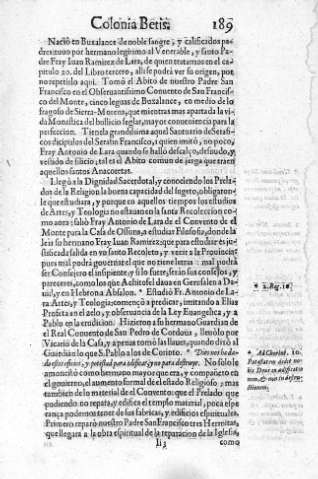 Colonia Betis. 189
Nació en Buxalance de noble sangre, y calificados pa-
dres: tuvo por hermano legitimo al Venerable, y santo Pa-
dre Fray Iuan Ramirez de Lara, de quien tratamos en el ca-
pitulo 20. del Libro tercero, alli se podrà ver su origen, por
no repetirlo aqui. Tomò el Abito de nuestro Padre San
Francisco en el Observantissimo Convento de San Francis-
co del Monte, cinco leguas de Buxalance, en medio de lo
fragoso de Sierra-Morena, que mientras mas apartada la vi-
da Monastica del bollicio seglar, mayor conveniencia para la
perfeccion. Tienela grandissima aquel Santuario de Serafi-
cos discipulos del Serafin Francisco, à quien imitò, no poco,
Fray Antonio de Lara quando se hallò descalço, desnudo, y
vestido de silicio, tal es el Abito comun de jerga que traen
aquellos santos Anacoretas.
Llegò à la Dignidad Sacerdotal, y conociendo los Prela-
dos de la Religion la buena capacidad del sugeto, obligaron-
le que estudiara, y porque en aquellos tiempos los estudios
de Artes, y Teologia no estavan en la santa Recoleccion co-
mo aora: saliò Fray Antonio de Lara de el Convento de el
Monte para la Casa de Ossuna, à estudiar Filosofia, donde la
leìa su hermano Fray Iuan Ramirez: que para estudiar es ju-
stificada salida en vn santo Recoleto, y venir à la Provincia:
pues mal podrà governar el que no tiene letras: mal podrà
ser Consejero el insipiente, y si lo fuere, seràn sus consejos, y
pareceres, como los que Achitofel dava en Gerusalen à Da-
uid, y en Hebron à Absalon. * Estudiò Fr. Antonio de La-
ra Artes, y Teologia; començò à predicar, imitando à Elias
Profeta en el zelo, y observancia de la Ley Euangelica, y à
Pablo en la erudicion. Hizieron à su hermano Guardian de
el Real Convento de San Pedro de Cordoua, llevòlo por
Vicario de la Casa, y apenas tomò las llaues, quando diò al
Guardian lo que S. Pablo à los de Corinto. * Dios me ha da-
do este oficio, y potestad para edificar, y no para destruye. No solo le
amonestò como hermano mayor que era, y compañero en
el govierno, el aumento formal de el estado Religioso, mas
tambien de lo material de el Convento: que el Prelado que
pudiendo no repara, y edifica el templo material, poca espe-
rança podemos tener de sus fabricas, y edificios espirituales.
Primero reparò nuestro Padre San Francisco tres Hermitas,
que llegara à la obra espiritual de la reparacion de la Iglesia,
Ii3 como
* 2. Reg. 16.
* Ad Corint. 10.
Potestatem dedit no-
bis Deus in aedificatio
nem, & non in destru-
ctionem.